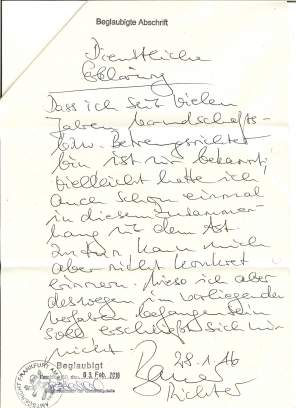 Beglaubigte Abschrift
Dienstliche
Erklärung
Dass ich seit vielen
Jahren Landschafts-
bzw. Betreuungsrichter
bin ist mir bekannt;
vielleicht hatte ich
auch schon einmal
in diesem Zusammen-
hang mit dem Ast
zu tun kann mich
aber nicht konkret
erinnern. Wieso ich aber
deswegen im vorliegenden
Verfahren befangen sein
soll erschließt sich mir
nicht.
28.1.16
Richter
Beglaubigt
03. Feb. 2016